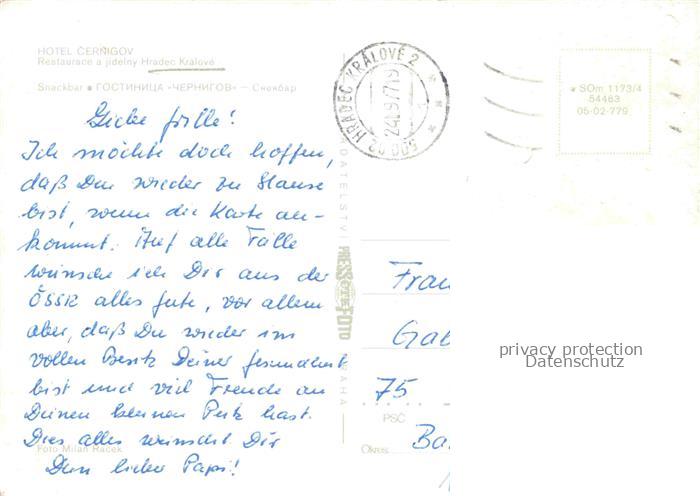 HOTEL ČERNIGOV
Restaurace a jídelny Hradec Králové
Snackbar ■ ГОСТИНИЦА «ЧЕРНИГОВ» — Снекбар
Liebe
Ich möchte doch hoffen,
daß Du wieder zu Hause
bist, wenn die Karte an-
kommt. Auf alle Fälle
wünsche ich Dir aus der
ČSSR alles gute, vor allem
aber, daß Du wieder im
vollen Besitz Deiner Gesundheit
bist und viel Freude an
Deinen kleinen hast.
Dies alles wünscht Dir
Dein lieber Papi!
Foto Milan Racek
PRESSFOTO
PRAHA
500 02 HRADEC KRÁLOVÉ 2
SOm 1173/4
54463
05-02-779
Frau
Gab
75
PSČ
Okres
Ba
privacy protection
Datenschutz